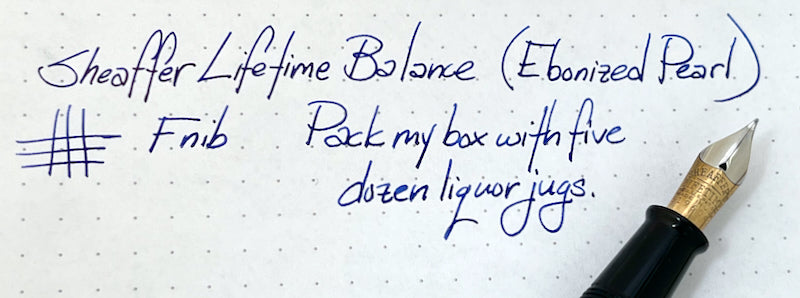 Sheaffer Lifetime Balance (Ebonized Pearl)
F nib
Pack my box with five
dozen liquor jugs.